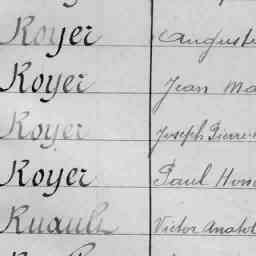 Royer Auguste
Royer Jean Ma
Royer Joseph Pierre
Royer Paul Hono
Ruault Victor Anatol